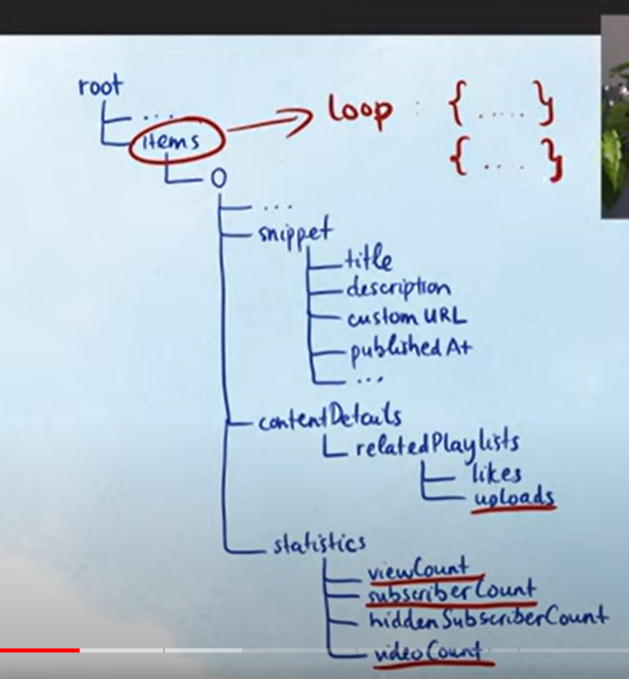 root
...
items → loop : { ..... }
{ .... }
0
...
snippet
title
description
custom URL
publishedAt
...
contentDetails
relatedPlaylists
likes
uploads
statistics
viewCount
subscriberCount
hiddenSubscriberCount
videoCount